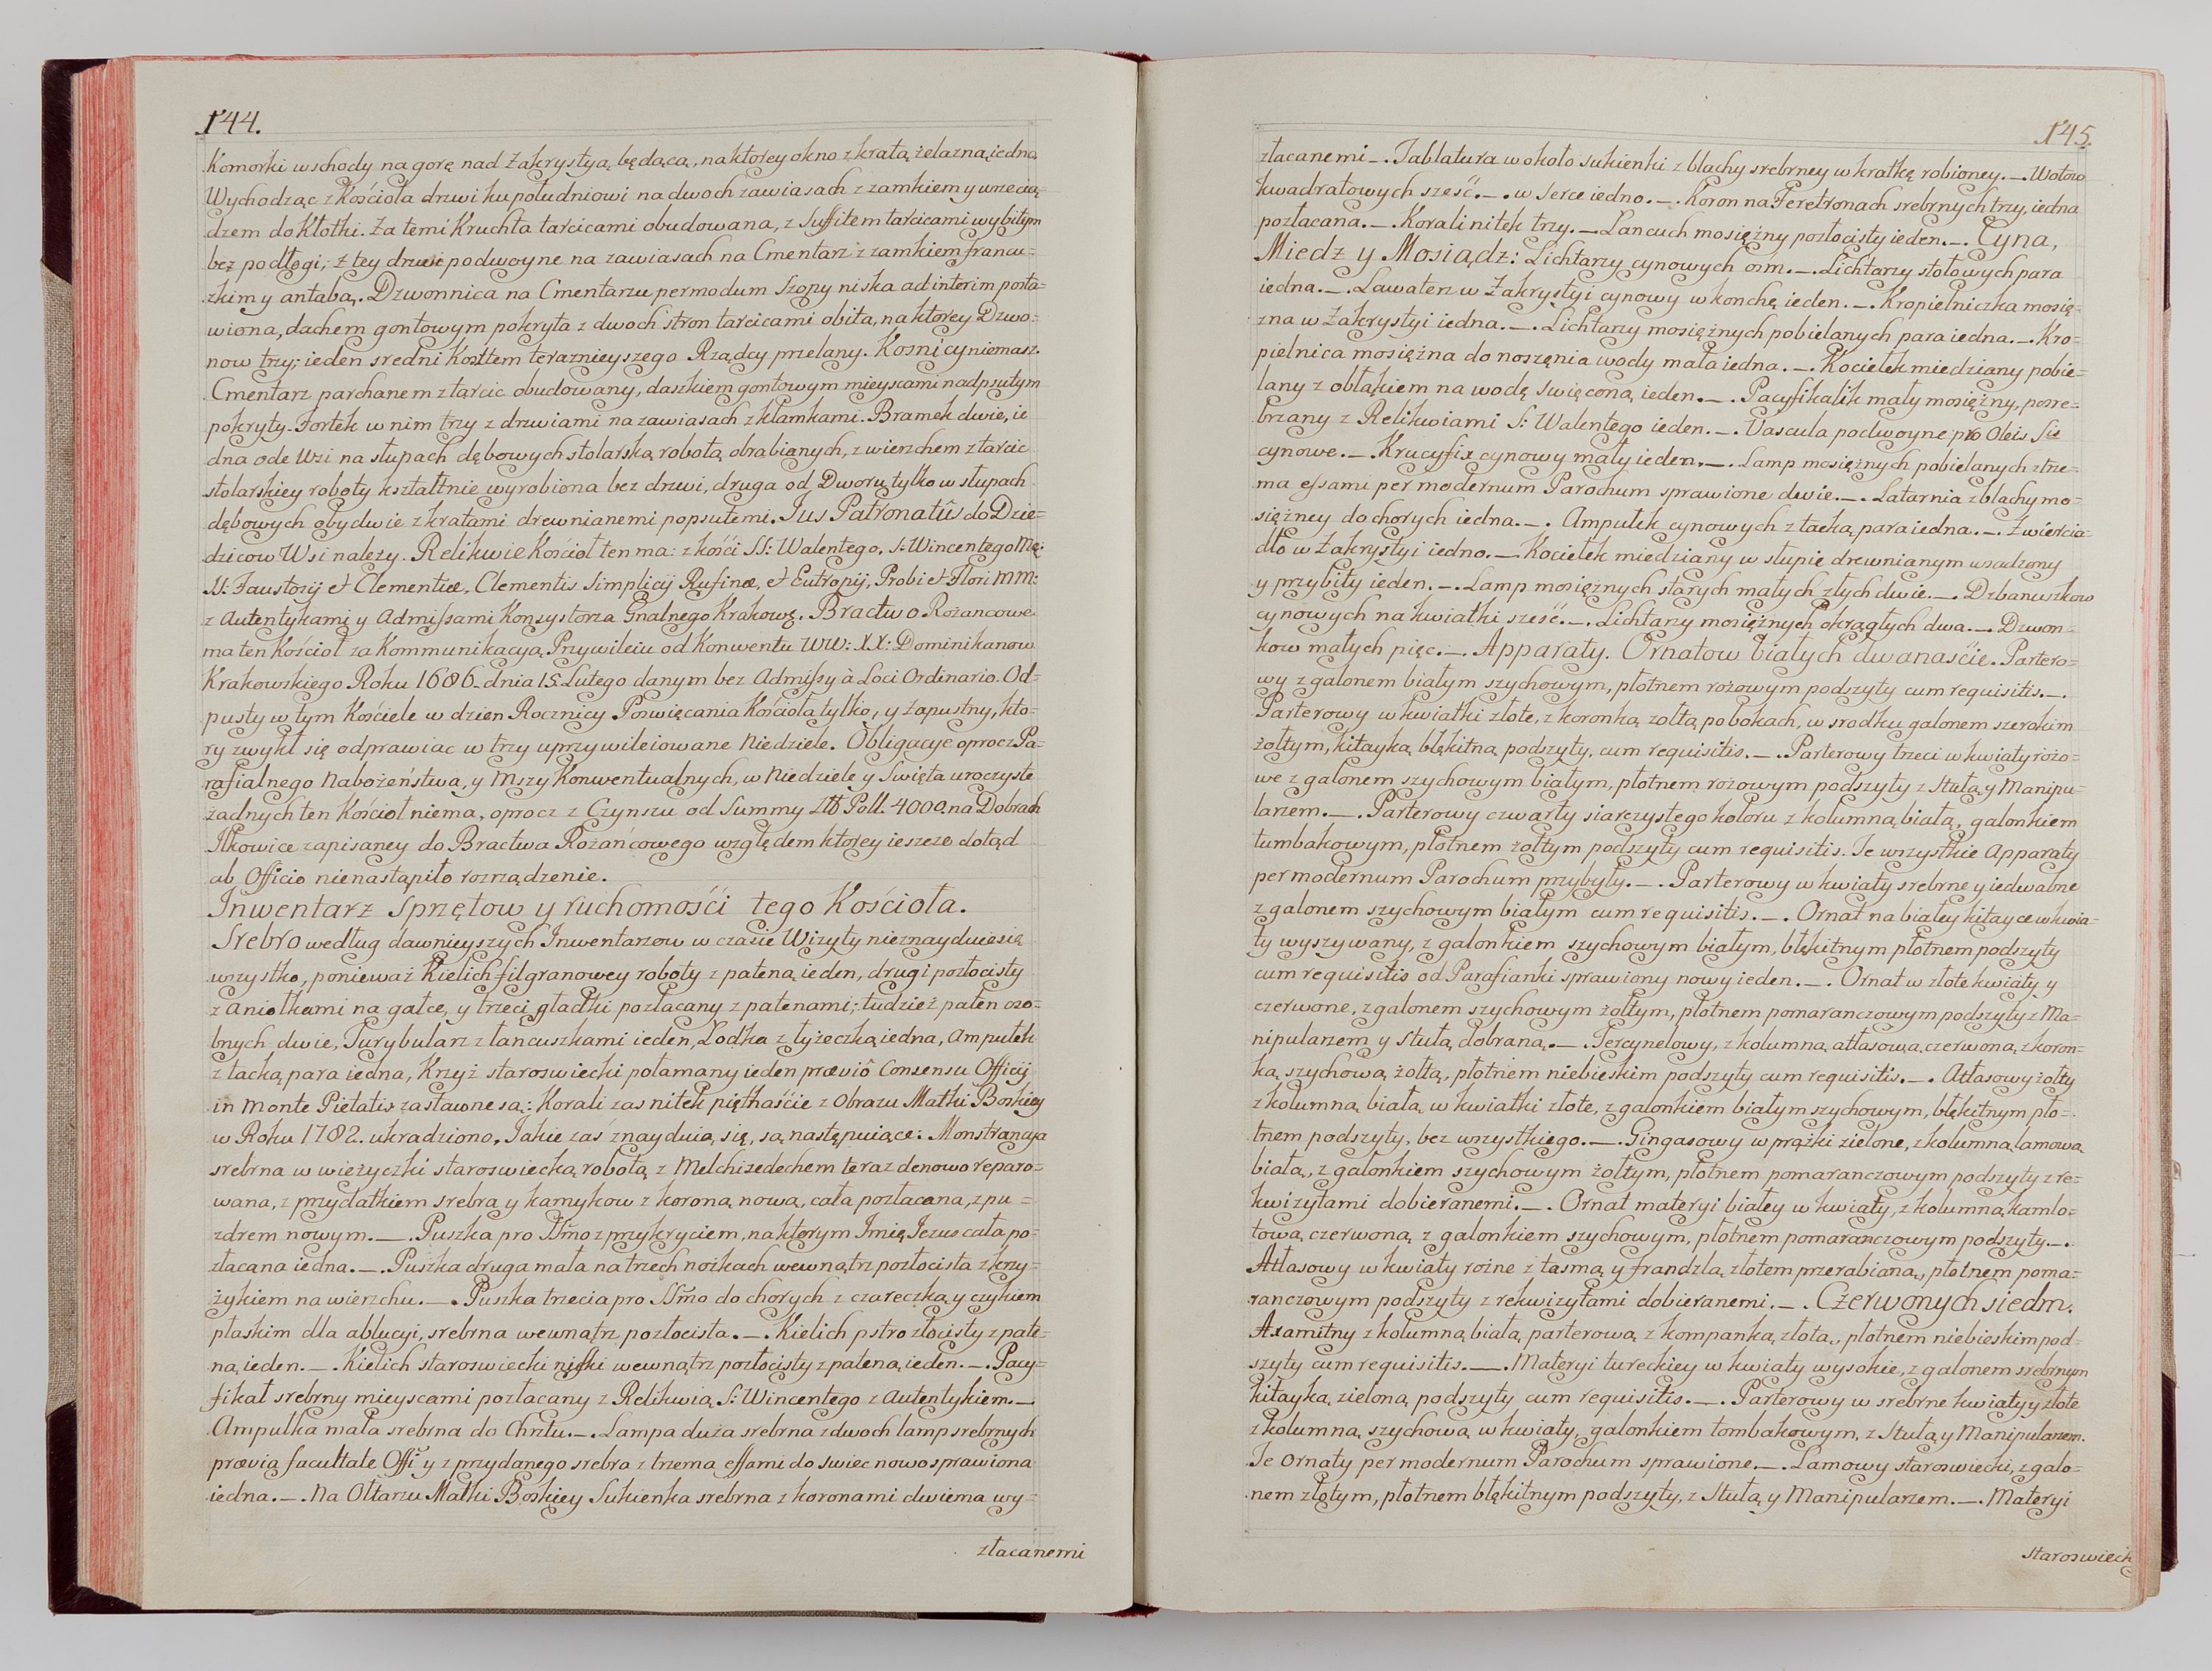 144.
Komorki wschody na gorę nad Zakrystyą będącą, na ktorey okno z kratą żelazną iedno
Wychodząc z Kościoła drzwi ku południowi na dwoch zawiasach z zamkiem y wrzecią-
dzem do Kłotki. Za temi Kruchta tarcicami obudowana, z Suffitem tarcicami wybitym
bez podłogi; z tey drzwi podwoyne na zawiasach na Cmentarz z zamkiem francu-
zkim y antabą. Dzwonnica na Cmentarzu per modum Szopy niska ad interim posta-
wiona, dachem gontowym pokryta z dwoch stron tarcicami obita, na ktorey Dzwo-
now trzy; ieden sredni Kosztem teraznieyszego Rządcy przelany. Kosnicy niemasz.
Cmentarz parchanem z tarcic obudowany, daszkiem gontowym mieyscami nadpsutym
pokryty. Fortek w nim trzy z drzwiami na zawiasach z klamkami. Bramek dwie, ie
dna ode Wsi na słupach dębowych stolarską robotą obrabianych, z wierzchem z tarcic
stolarskiey roboty kształtnie wyrobiona bez drzwi, druga od Dworu tylko w słupach
dębowych obydwie z kratami drewnianemi popsutemi. Jus Patronatûs do Dzie-
dzicow Wsi należy. Relikwie Kościoł ten ma: z kości SS: Walentego, S: Wincentego Mę:
SS: Faustorij et Clementiæ, Clementis Simplicij Rufinæ, et Eutropij, Probi et Flori MM:
z Autentykami y Admissami Konsystorza Gnalnego Krakowg. Bractwo Rożancowe
ma ten Kościoł za Kommunikacyą Przywileiu od Konwentu WW: XX: Dominikanow
Krakowskiego Roku 1686. dnia 15. Lutego danym bez Admissy à Loci Ordinario. Od-
pusty w tym Kościele w dzien Rocznicy Poswięcania Kościoła tylko, y Zapustny, kto-
ry zwykł się odprawiac w trzy uprzywileiowane Niedziele. Obligacye oprocz Pa-
rafialnego Nabożeństwa, y Mszy Konwentualnych, w Niedziele y Swięta uroczyste
żadnych ten Kościoł niema, oprocz z Czynszu od Summy Zlt Poll. 4000. na Dobrach
Ilkowice zapisaney do Bractwa Rożańcowego względem ktorey ieszcze dotąd
ab Officio nienastąpiło rozrządzenie.
Inwentarz Sprzętow y ruchomości tego Kościoła.
Srebro według dawnieyszych Inwentarzow w czasie Wizyty nieznayduie się
wszystko, ponieważ Kielich filgranowey roboty z pateną ieden, drugi pozłocisty
z Aniołkami na gałce, y trzeci gładki pozłacany z patenami; tudzież paten oso-
bnych dwie, Turybularz z łancuszkami ieden, Łodka z łyżeczką iedna, Ampułek
z tacką para iedna, Krzyż staroswiecki połamany ieden præviô Consensu Officij
in Monte Pietatis zastawne są: Korali zas nitek piętnaście z Obrazu Matki Boskiey
w Roku 1782. ukradziono. Jakie zaś znayduią się, są następuiące: Monstrancya
srebrna w wieżyczki staroswiecką robotą z Melchizedechem teraz denowo reparo-
wana, z przydatkiem srebra y kamykow z koroną nową, cała pozłacana, z pu-
zdrem nowym._. Puszka pro SSmo z przykryciem, na ktorym Imię Jezus cała po-
złacana iedna._. Puszka druga mała na trzech nożkach wewnątrz pozłocista z krzy-
żykiem na wierzchu._. Puszka trzecia pro SSmo do chorych z czareczką y czykiem
płaskim dla ablucyi, srebrna wewnątrz pozłocista._. Kielich pstro złocisty z pate-
ną ieden._. Kielich staroswiecki niski wewnątrz pozłocisty z pateną ieden._. Pacy-
fikał srebrny mieyscami pozłacany z Relikwią S: Wincentego z Autentykiem._.
Ampułka mała srebrna do Chrztu._. Lampa duża srebrna z dwoch lamp srebrnych
prævia facultate Offi y z przydanego srebra z trzema essami do swiec nowo sprawiona
iedna._. Na Ołtarzu Matki Boskiey Sukienka srebrna z koronami dwiema wy-
złacanemi
145.
złacanemi_. Tablatura wokoło sukienki z blachy srebrney w kratkę robioney._. Wotow
kwadratowych sześć._. w Serce iedno._. Koron na Feretronach srebrnych trzy, iedna
pozłacana._. Korali nitek trzy._. Lancuch mosiężny pozłocisty ieden._. Cyna,
Miedz y Mosiądz: Lichtarzy cynowych osm._. Lichtarzy stołowych para
iedna._. Lawaterz w Zakrystyi cynowy w konchę ieden._. Kropielniczka mosię-
zna w Zakrystyi iedna._. Lichtarzy mosiężnych pobielanych para iedna._. Kro-
pielnica mosiężna do noszęnia wody mała iedna._. Kociełek miedziany pobie-
lany z obłąkiem na wodę swięconą ieden._. Pacyfikalik mały mosiężny, posre-
brzany z Relikwiami S: Walentego ieden._. Vascula podwoyne pro Oleis Sis
cynowe._. Krucyfix cynowy mały ieden._. Lamp mosiężnych pobielanych z trze-
ma essami per modernum Parochum sprawione dwie._. Latarnia z blachy mo-
siężney do chorych iedna._. Ampułek cynowych z tacką para iedna._. Zwiercia-
dło w Zakrystyi iedno._. Kociełek miedziany w słupie drewnianym wsadzony
y przybity ieden._. Lamp mosiężnych starych małych złych dwie._. Dzbanuszkow
cynowych na kwiatki sześć._. Lichtarzy mosiężnych okrągłych dwa._. Dzwon-
kow małych pięc._. Apparaty. Ornatow białych dwanaście. Partero-
wy z galonem białym szychowym, płotnem rożowym podszyty cum requisitis._.
Parterowy w kwiatki złote, z koronką zołtą po bokach, w srodku galonem szerokim
żołtym, kitayką błękitną podszyty, cum requisitis._. Parterowy trzeci w kwiaty rożo-
we z galonem szychowym białym, płotnem rozowym podszyty z Stułą y Manipu-
larzem._. Parterowy czwarty siarczystego koloru z kolumną białą, galonkiem
tumbakowym, płotnem żołtym podszyty cum requisitis. Te wszystkie Apparaty
per modernum Parochum przybyły._. Parterowy w kwiaty srebrne y iedwabne
z galonem szychowym białym cum requisitis._. Ornat na białey kitayce w kwia-
ty wyszywany, z galonkiem szychowym białym, błękitnym płotnem podszyty
cum requisitis od Parafianki sprawiony nowy ieden._. Ornat w złote kwiaty y
czerwone, z galonem szychowym żołtym, płotnem pomaranczowym podszyty z Ma-
nipularzem y Stułą dobraną._. Tercynelowy, z kolumną atłasową czerwoną z koron-
ką szychową żołtą, płotnem niebieskim podszyty cum requisitis._. Atłasowy żołty
z kolumną białą w kwiatki złote, z galonkiem białym szychowym, błękitnym pło-
tnem podszyty, bez wszystkiego._. Gingasowy w prążki zielone, z kolumną lamową
białą, z galonkiem szychowym żołtym, płotnem pomaranczowym podszyty z re-
kwizytami dobieranemi._. Ornat materyi białey w kwiaty, z kolumną kamlo-
tową czerwoną z galonkiem szychowym, płotnem pomaranczowym podszyty._.
Atłasowy w kwiaty rożne z tasmą y frandzlą złotem przerabianą, płotnem poma-
ranczowym podszyty z rekwizytami dobieranemi._. Czerwonych siedm.
Axamitny z kolumną białą parterową z kompanką złotą, płotnem niebieskim pod-
szyty cum requisitis._. Materyi tureckiey w kwiaty wysokie, z galonem srebrnym
kitayką zieloną podszyty cum requisitis._. Parterowy w srebrne kwiaty y złote
z kolumną szychową w kwiaty, galonkiem tombakowym, z Stułą y Manipularzem.
Te Ornaty per modernum Parochum sprawione._. Lamowy staroswiecki, z galo-
nem złotym, płotnem błękitnym podszyty, z Stułą y Manipularzem._. Materyi
staroswieck